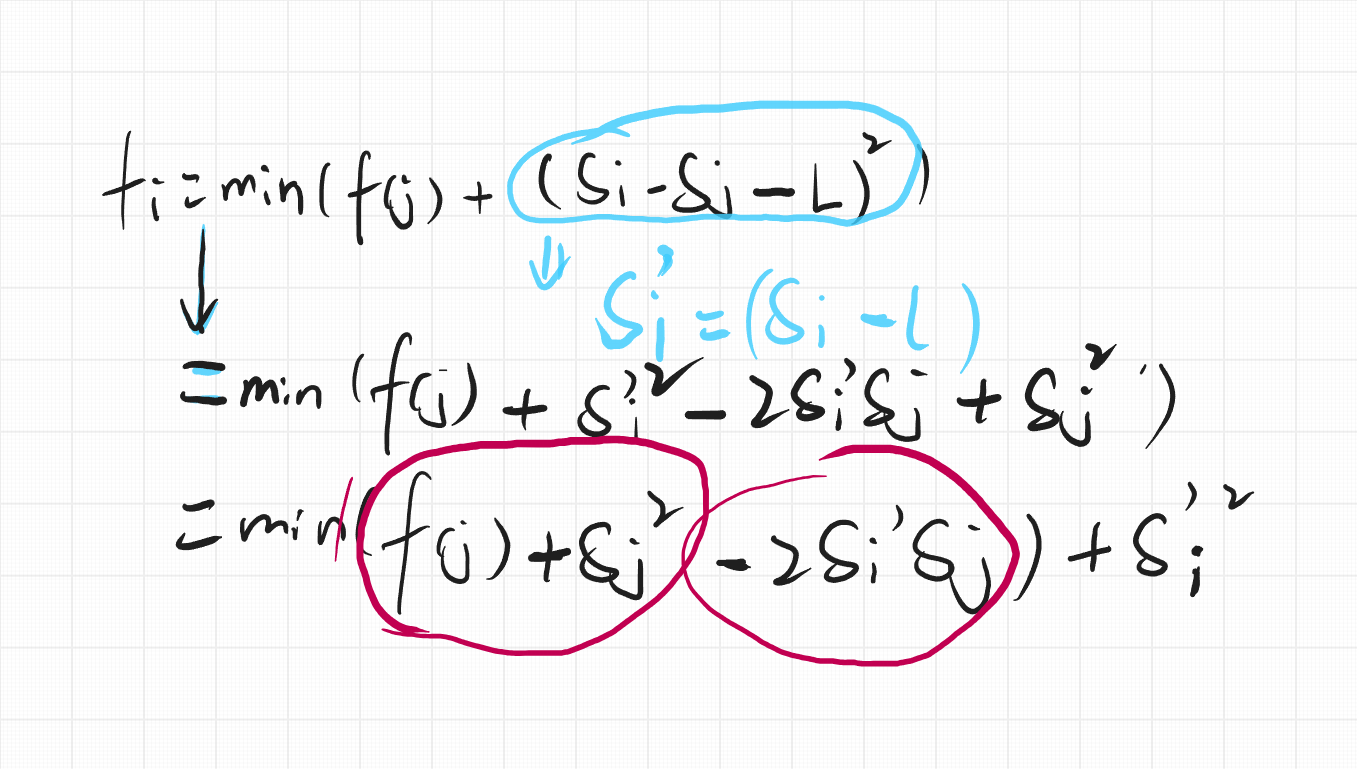 fi = min(f(j) + (Si - Sj - L)²)
Si' = (Si - L)
= min (f(j) + Si'² - 2Si'Sj + Sj²)
= min(f(j) + Sj² - 2Si'Sj) + Si'²